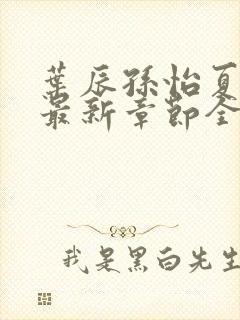 葉辰孫怡夏
最新章節全
我是黑白先生